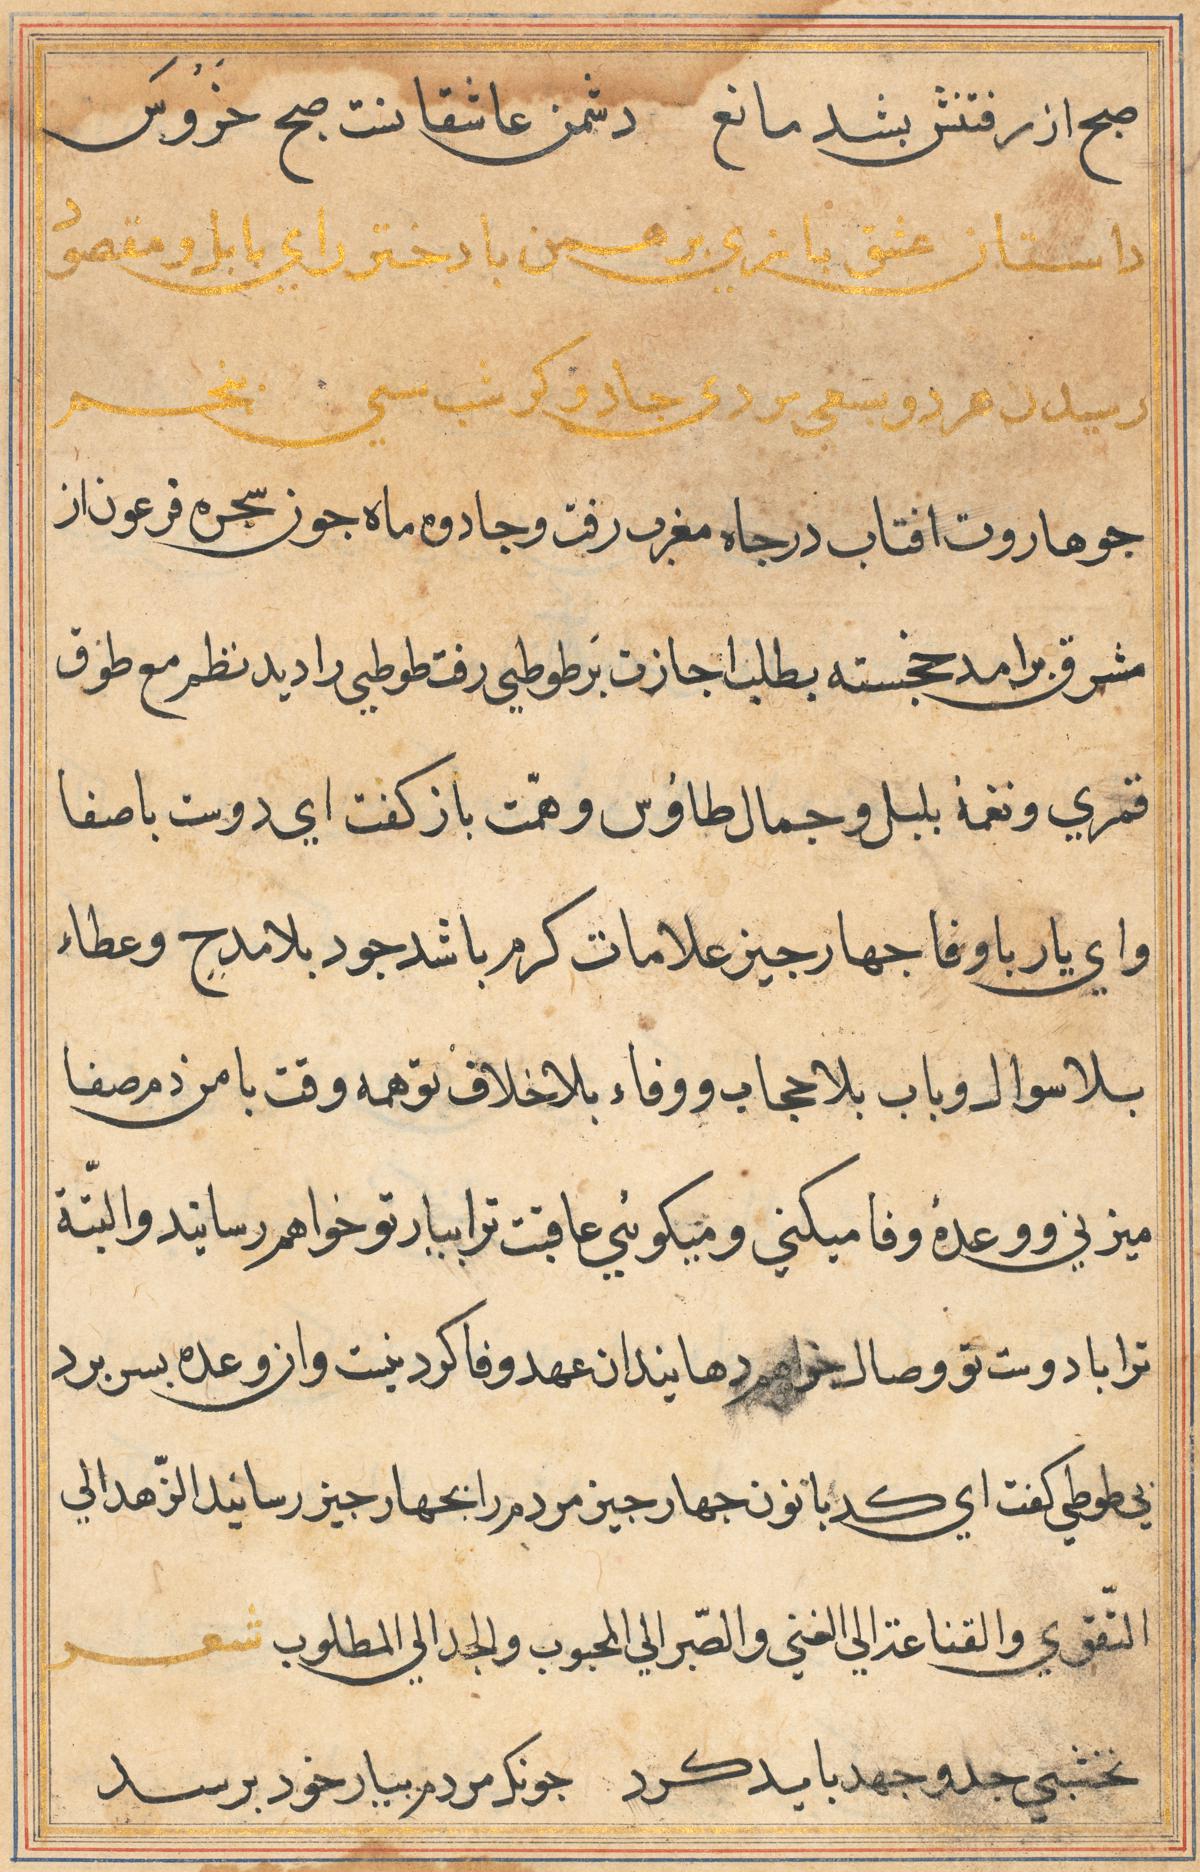 صبح از رفتنش بشد مانع دشمن عاشقانست صبح خروس
داستان عشق بازي برهمن با دختر راي بابل و مقصود
رسيدن هر دو بسعي مردي جادوگر شب سي پنجم
جو هاروت افتاب در جاه مغرب رفت و جادوه ماه جون سحره فرعون از
مشرق برامد خجسته بطلب اجازت بر طوطي رفت طوطي را ديد نظم مع طوق
قمري و نغمهٔ بلبل و جمال طاؤس و همّت باز كفت اي دوست باصفا
واي يار باوفا جهار جيز علامات كرم باشد جود بلا مدح وعطاء
بلا سوال وباب بلا حجاب ووفاء بلا خلاف توهمه وقت با من دم صفا
ميزني ووعدهٔ وفا ميكني و ميكوئي عاقبت ترا بيار تو خواهم رسانيد والبتّة
ترا با دوست تو وصال خواهم دهانيد ان عهد وفا كردنيست وان وعده بسر برد
ني طوطي كفت اي كدبانون جهار جيز مردم را بجهار جيز رسانيد الزّهد الي
التّقوي والقناعة الي الغني والصّبر الي المحبوب والجد الي المطلوب شعر
نخشبي جد و جهد بايد كرد جونكه مردم بيار خود برسد